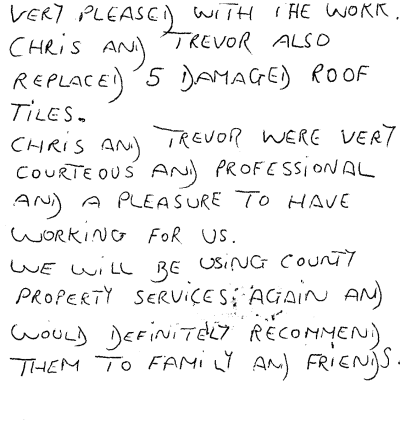 VERY PLEASED WITH THE WORK.
CHRIS AND TREVOR ALSO
REPLACED 5 DAMAGED ROOF
TILES.
CHRIS AND TREVOR WERE VERY
COURTEOUS AND PROFESSIONAL
AND A PLEASURE TO HAVE
WORKING FOR US.
WE WILL BE USING COUNTY
PROPERTY SERVICES AGAIN AND
WOULD DEFINITELY RECOMMEND
THEM TO FAMILY AND FRIENDS.